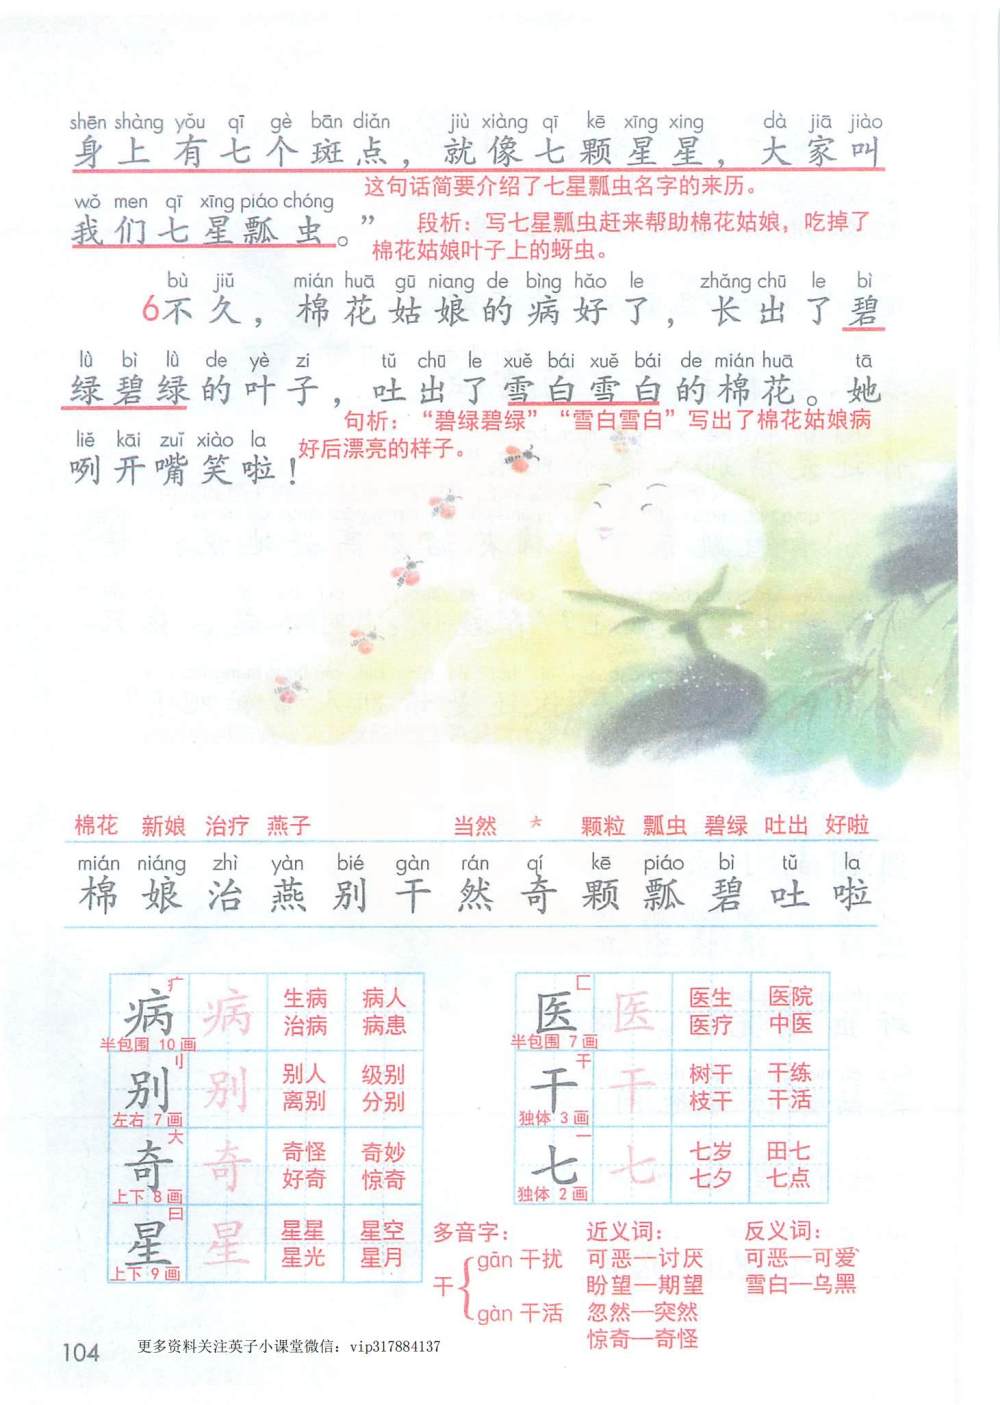 shēn shàng yǒu qī gè bān diǎn jiù xiàng qī kē xīng xing dà jiā jiào
身上有七个斑点，就像七颗星星，大家叫
这句话简要介绍了七星瓢虫名字的来历。
wǒ men qī xīng piáo chóng
我们七星瓢虫。”
段析：写七星瓢虫赶来帮助棉花姑娘，吃掉了
棉花姑娘叶子上的蚜虫。
bù jiǔ mián huā gū niang de bìng hǎo le zhǎng chū le bì
6不久，棉花姑娘的病好了，长出了碧
lǜ bì lǜ de yè zi tǔ chū le xuě bái xuě bái de mián huā tā
绿碧绿的叶子，吐出了雪白雪白的棉花。她
句析：“碧绿碧绿”“雪白雪白”写出了棉花姑娘病
好后漂亮的样子。
liě kāi zuǐ xiào la
咧开嘴笑啦！
棉花 新娘 治疗 燕子 当然 * 颗粒 瓢虫 碧绿 吐出 好啦
mián niáng zhì yàn bié gàn rán qí kē piáo bì tǔ la
棉 娘 治 燕 别 干 然 奇 颗 瓢 碧 吐 啦
疒
病 病 生病 病人
治病 病患
半包围 10画
刂
别 别 别人 级别
离别 分别
左右 7画
大
奇 奇 奇怪 奇妙
好奇 惊奇
上下 8画
日
星 星 星星 星空
星光 星月
上下 9画
匚
医 医 医生 医院
医疗 中医
半包围 7画
干
干 干 树干 干练
枝干 干活
独体 3画
一
七 七 七岁 田七
七夕 七点
独体 2画
多音字：
干
gān 干扰
gàn 干活
近义词：
可恶—讨厌
盼望—期望
忽然—突然
惊奇—奇怪
反义词：
可恶—可爱
雪白—乌黑
104
更多资料关注英子小课堂微信：vip317884137